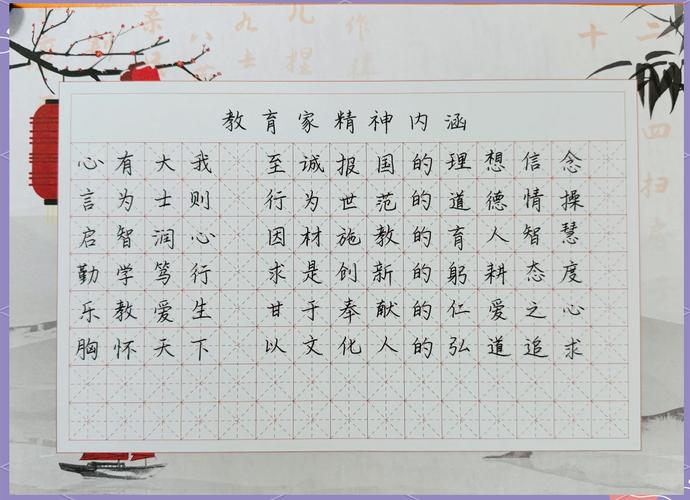 教育家精神内涵
心有大我 至诚报国的理想信念
言为士则 行为世范的道德情操
启智润心 因材施教的育人智慧
勤学笃行 求是创新的躬耕态度
乐教爱生 甘于奉献的仁爱之心
胸怀天下 以文化人的弘道追求